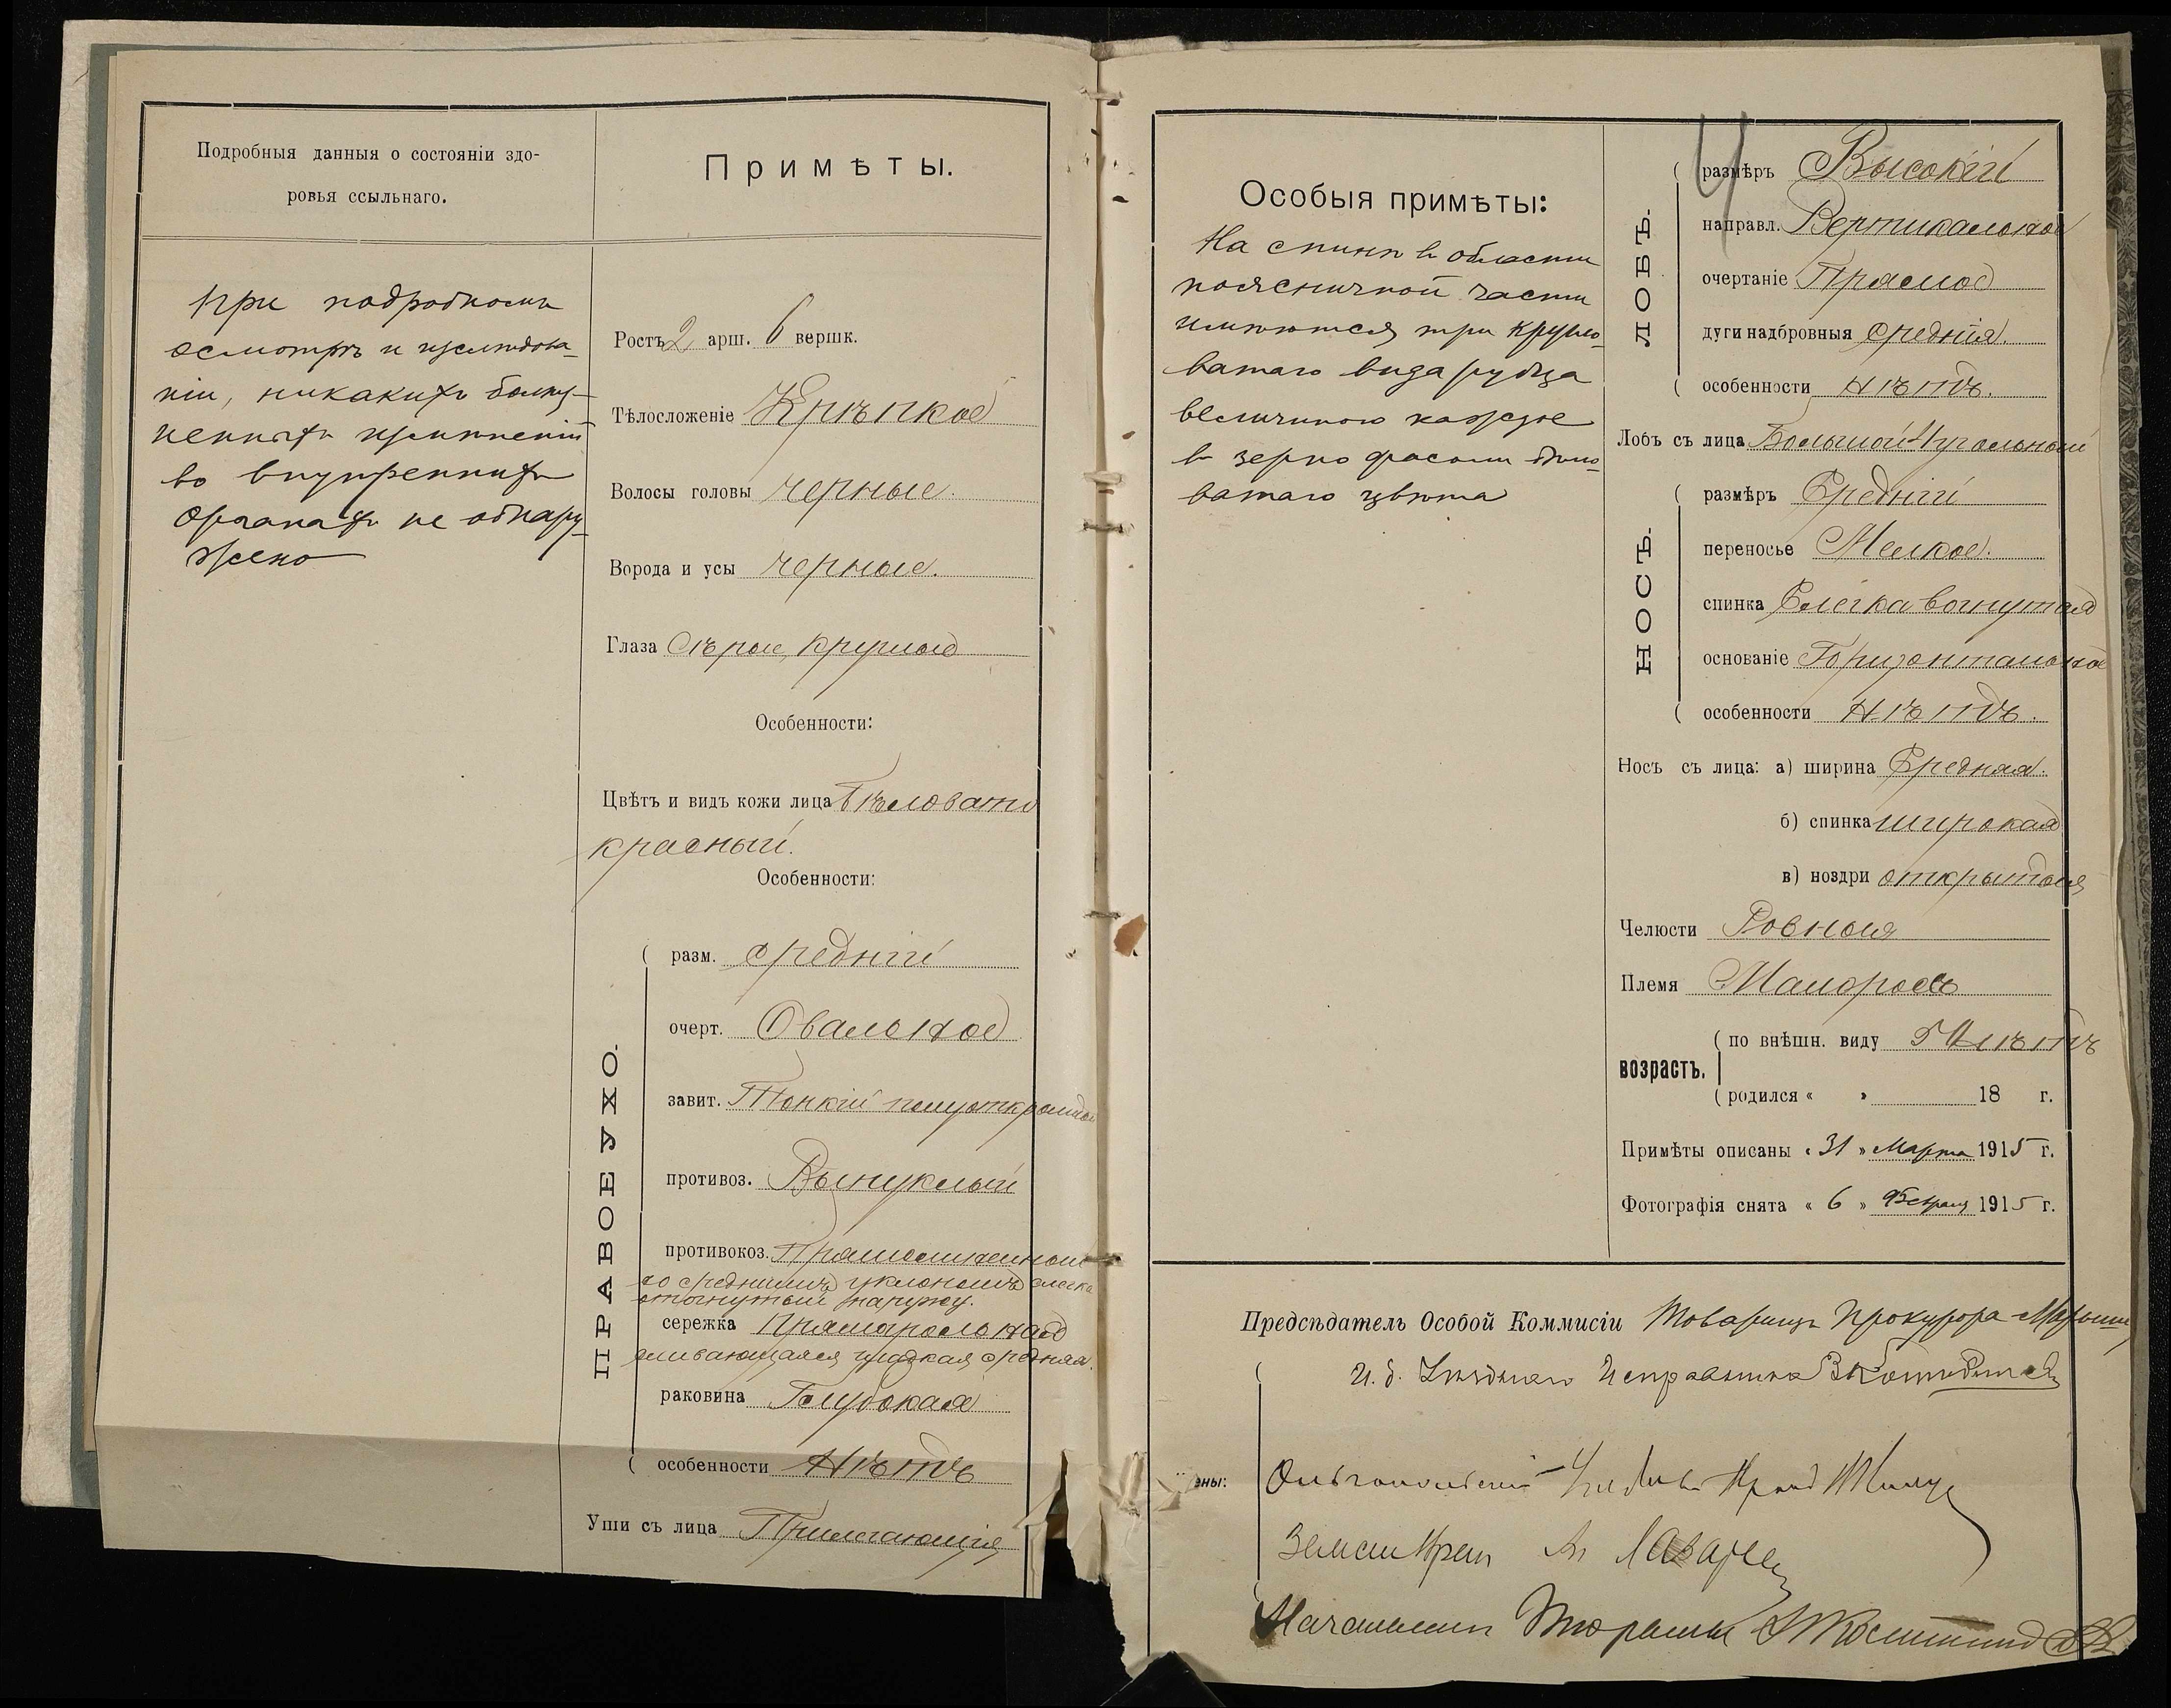 Подробныя данныя о состоянiи здо-
ровья ссыльнаго.
При подробномъ
осмотрѣ и изслѣдова-
нiи, никакихъ болѣз-
ненныхъ измѣненiй
во внутреннихъ
органахъ не обнару-
жено
Примѣты.
Ростъ 2 арш. 6 вершк.
Тѣлосложенiе Крѣпкое
Волосы головы черные.
Борода и усы черные.
Глаза Сѣрые, круглые
Особенности:
Цвѣтъ и видъ кожи лица Бѣловато
красный.
Особенности:
ПРАВОЕ УХО.
разм. среднiй
очерт. Овальное
завит. Тонкiй полуоткрытый
противоз. Выпуклый
противокоз. Прямолинейный
со среднимъ уклономъ слегка
отогнутый наружу.
сережка Прямоугольная
сливающаяся гладкая средняя.
раковина Глубокая
особенности Нѣтъ
Уши съ лица Прилегающiя
Особыя примѣты:
На спинѣ въ области
поясничной части
имѣются три кругло-
ватаго вида рубца
величиною каждое
въ зерно фасоли бѣло-
ватаго цвѣта
ЛОБЪ.
размѣръ Высокiй
направл. Вертикальное
очертанiе Прямое
дуги надбровныя среднiя.
особенности Нѣтъ.
Лобъ съ лица Большой 4угольный
НОСЪ.
размѣръ Среднiй
переносье Мелкое.
спинка Слегка вогнутая
основанiе Горизонтальное
особенности Нѣтъ.
Носъ съ лица: а) ширина Средняя.
б) спинка широкая
в) ноздри открытыя
Челюсти Ровныя
Племя Малоросъ
возрастъ.
по внѣшн. виду лѣтъ
родился « » 18 г.
Примѣты описаны « 31 » Марта 1915 г.
Фотографiя снята « 6 » Февраля 1915 г.
Предсѣдатель Особой Коммисiи Товарищъ Прокурора
И. д. Уѣзднаго Исправника
ены:
Ольгопольскiй
Земскiй Врачъ Лазарев
Начальникъ Тюрьмы